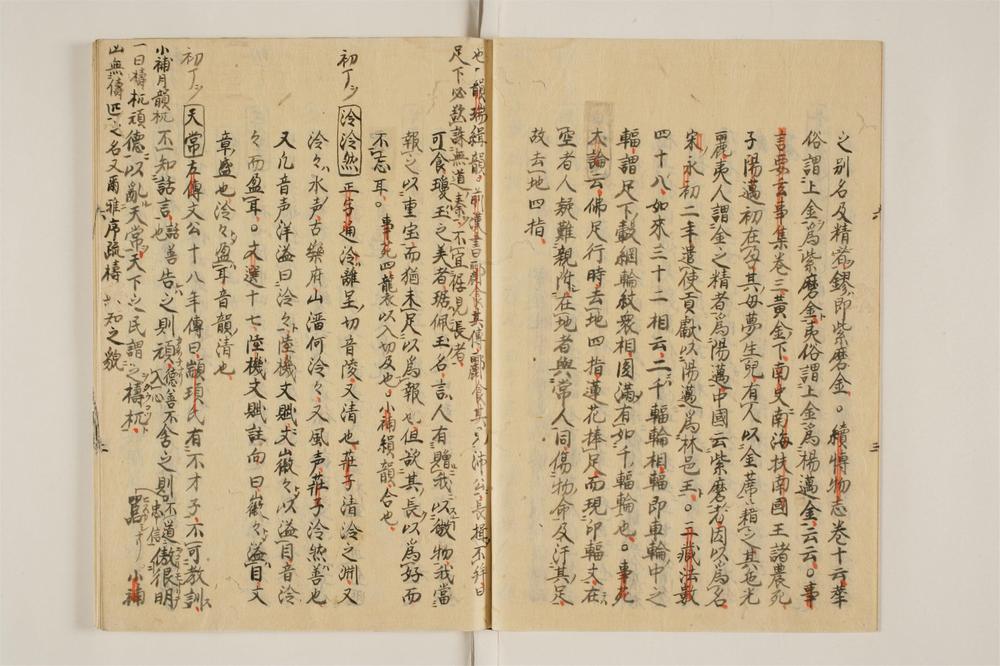 之别名及精者鏐即紫磨金。續博物志卷十云華
俗謂上金爲紫磨金夷俗謂上金爲楊邁金云云。事
言要玄事集卷三黄金下南史南海扶南國王諸農死
子陽邁初在孕其母夢生兒有人以金蓆藉之其色光
麗夷人謂金之精者爲陽邁中國云紫磨者因以爲名
宋永初二年遣使貢獻以陽邁爲林邑王。三藏法數
四十八如來三十二相云二千輻輪相輻即車輪中之
輻謂足下轂網輪紋衆相圓滿有如千輻輪也。事苑
大論云佛足行時去地四指蓮花捧足而現印輻文在
聖者人疑難親附在地者與常人同傷物命及汗其足
故去地四指
也。韻瑞緝韻。前漢書酈食其傳酈食其見沛公長揖不拜曰
足下必欲誅無道秦不宜倨見長者
可食瓊玉之美者琚佩玉名言人有贈我以微物我當
報之以重宝而猶未足以爲報也但欲其長以爲好而
不忘耳。事苑四 以入切及也。小補緝韻合也
初丁 泠泠然 正字通泠離呈切音陵又清也莊子清泠之淵又
泠々水声古樂府山溜何泠々又風声莊子泠然善也
又凡音声洋溢曰泠々陸機文賦文徽々以溢目音泠
々而盈耳。文選十七陸機文賦註向曰徽々溢目文
章盛也泠々盈耳音韻清也
初丁 天常 左傳文公十八年傳曰顓頊氏有不才子不可教訓
不知話言話善也告之則頑德善不入心舍之則不道忠信嚚傲很明
德以亂天常天下之民謂之檮杌 小補
小補月韻杌
一曰檮杌頑
凶無儔匹之名又爾雅序疏檮 知之貌